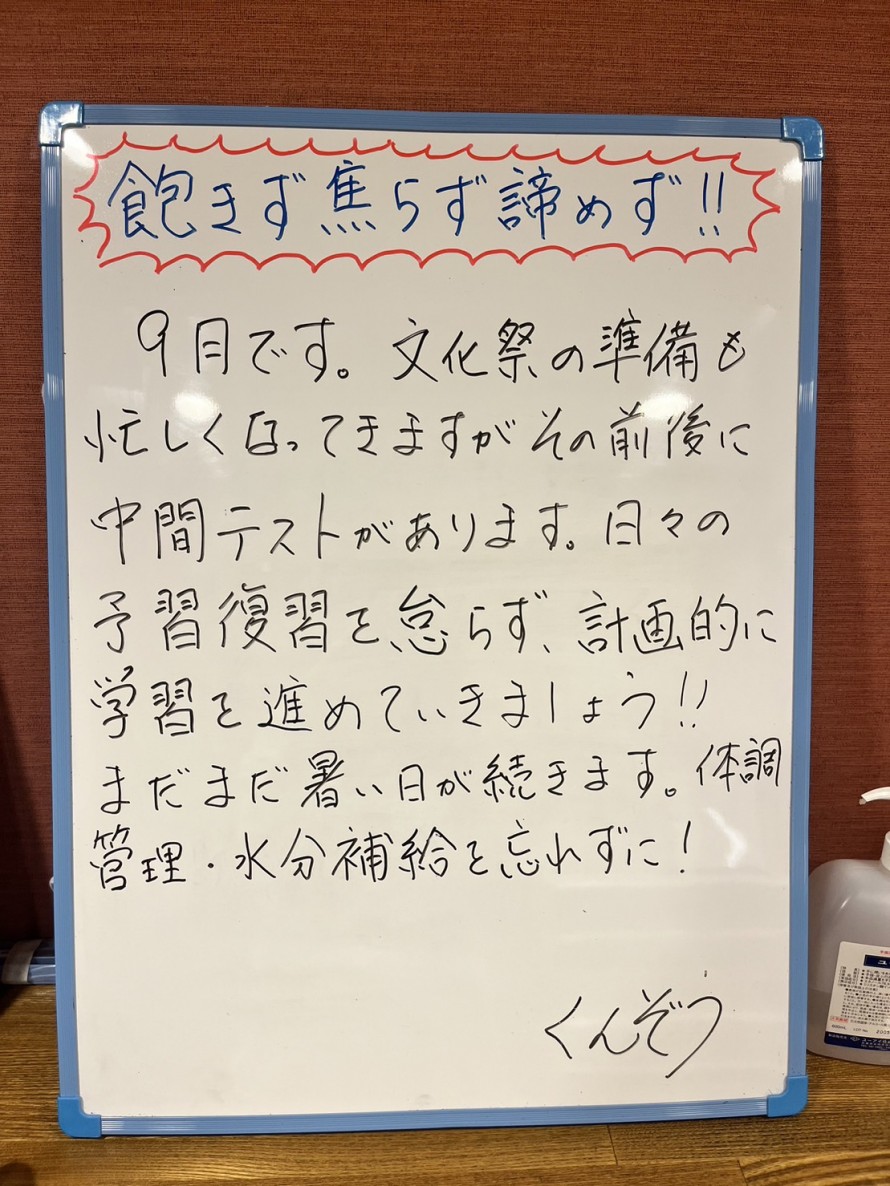 飽きず焦らず諦めず!!
9月です。文化祭の準備も
忙しくなってきますがその前後に
中間テストがあります。日々の
予習復習を怠らず、計画的に
学習を進めていきましょう!!
まだまだ暑い日が続きます。体調
管理・水分補給を忘れずに!
くんぞう